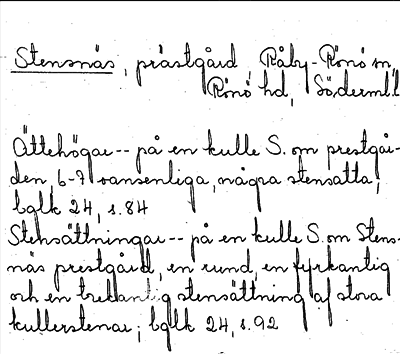 Stensnäs, prästgård Råby-Rönö sn,
Rönö hd, Söderml.
Ättehögar-- på en kulle S. om prestgår-
den, 6-7 ansenliga, några stensatta;
bglk 24, s. 84
Stensättningar-- på en kulle S. om Stens-
näs prestgård, en rund, en fyrkantig
och en trekantig stensättning af stora
kullerstenar; bglk 24, s. 92